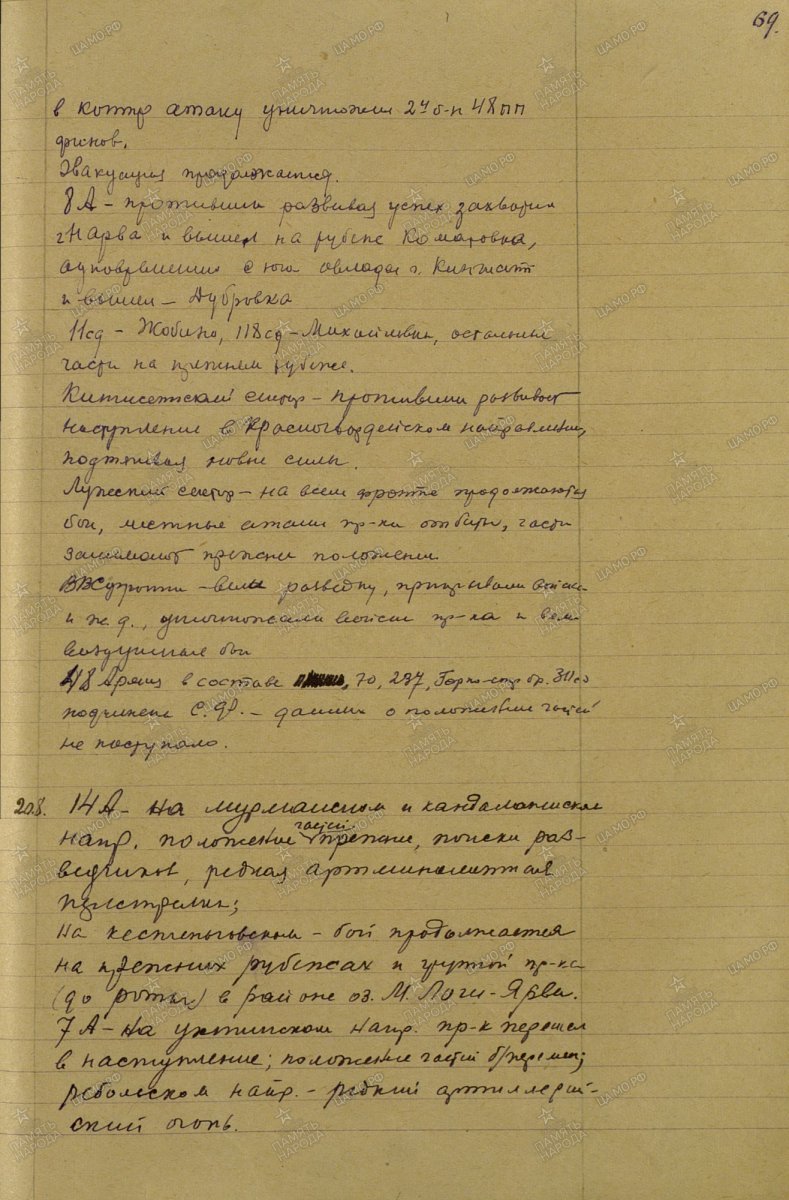 69.
в контр атаку уничтожен 2й б-н 48 пп
финов.
Эвакуация продолжается.
8А – противник развивая успех захватил
г. Нарва и вышел на рубеже Комаровка,
одновременно с юга овладел г. Кингисепп
и вышел – Дубровка
11сд – Жабино, 118сд – остальные
части на прежнем рубеже.
Кингисепский сектор – противник развивает
наступление в Красногвардейском направлении,
подтягивая новые силы.
Лужский сектор – на всем фронте продолжаются
бои, местные атаки пр-ка отбиты, части
занимают прежнее положение
ВВС фронта – вели разведку, прикрывали войска
и ж.д., уничтожали войска пр-ка и вели
воздушные бои
48 Армия в составе 70, 237, 1 Горно-стр бр. 311сд
подчинена С.Ф. – данных о положении частей
не поступало.
20.8. 14А – на мурманском и кандалакшском
напр. положение частей прежнее, поиски раз-
ведчиков, редкая артминометная
перестрелка;
на кестеньговском – бой продолжается
на прежних рубежах и группой пр-ка
(до роты) в районе оз. М. Логи-Ярви.
7А – на ухтинском напр. пр-к перешел
в наступление; положение частей б/перемен;
ребольском напр. – редкий артиллерий-
ский огонь.
ПАМЯТЬ НАРОДА
ЦАМО.РФ